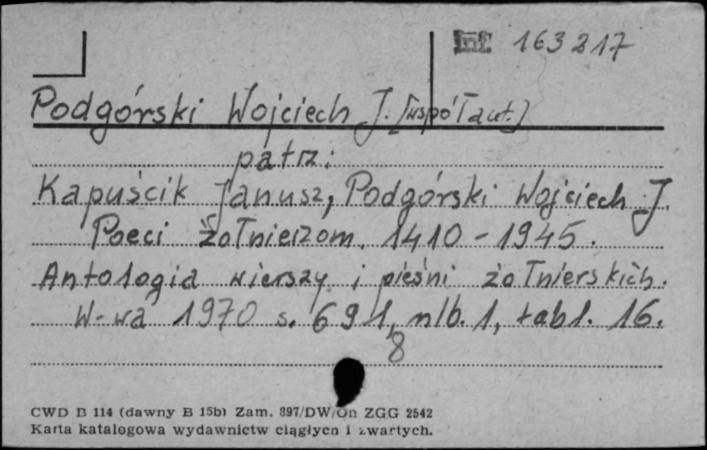 Inf. 163217
Podgórski Wojciech J. [współaut.]
patrz:
Kapuścik Janusz, Podgórski Wojciech J.
Poeci żołnierzom 1410-1945.
Antologia wierszy i pieśni żołnierskich.
W-wa 1970 s. 691, nlb. 1, tabl. 16.
8
CWD B 114 (dawny B 15b) Zam. 897/DW/On ZGG 2542
Karta katalogowa wydawnictw ciągłych i zwartych.